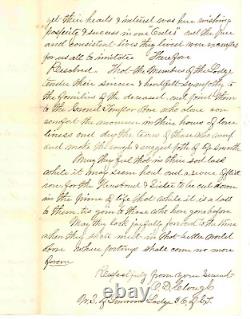 yet their hearts & interest was in wishing
prosperity & success in our Circles" and the pure
and consistent lives they lived were examples
for us all to imitate Therefore
Resolved That the Members of this Lodge
tender their sincere & heartfelt sympathy to
the families of the deceased and point them
to the Second Temple Above who alone can
comfort the mourner in their house of lone
liness and dry the tears of those who weep
and make the rough & rugged path of life smooth
May they feel that in their sad loss
while it may seem hard and severe
for the Husband & Sister to be cut down
in the prime of life that while it is a loss
to them its gain to those who have gone before
May they look joyfully forward to the time
when they shall meet in that better world
above where partings shall come no more
forever
Respectfully from your Servant
D. Clough
Lodge 36